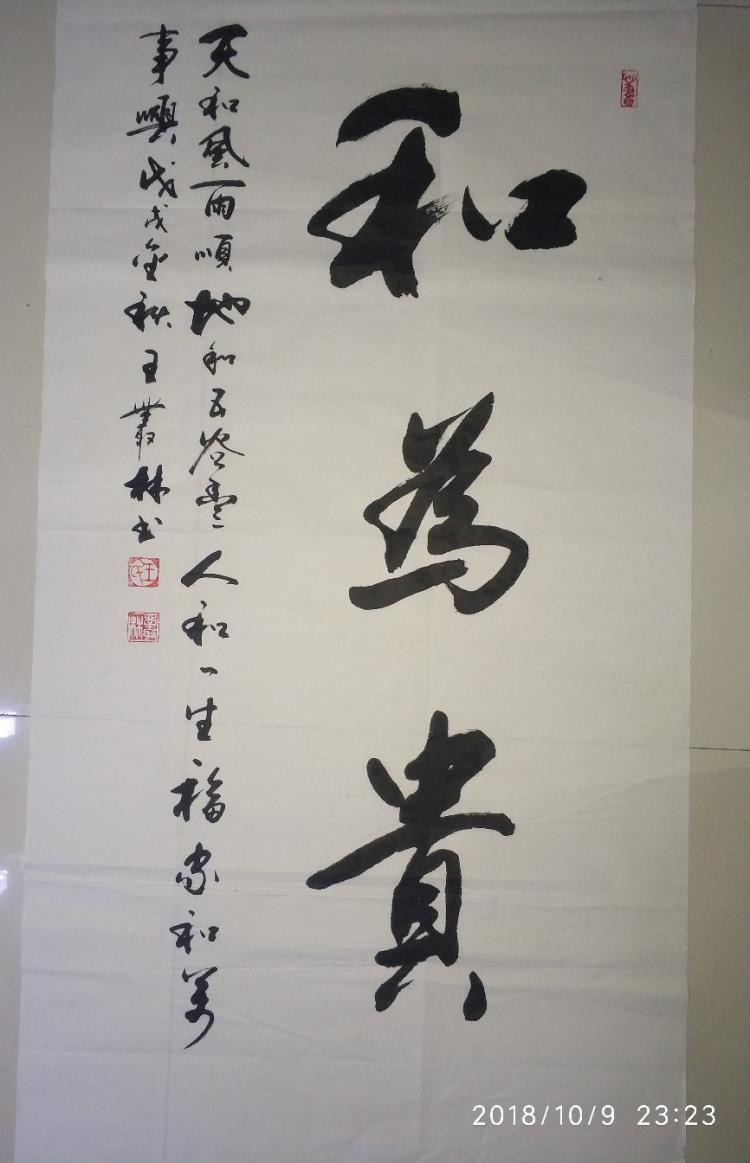 和為貴
天和風雨順地和五谷豊人和一生福家和萬
事順戊戌金秋王叢林书
2018/10/9 23:23